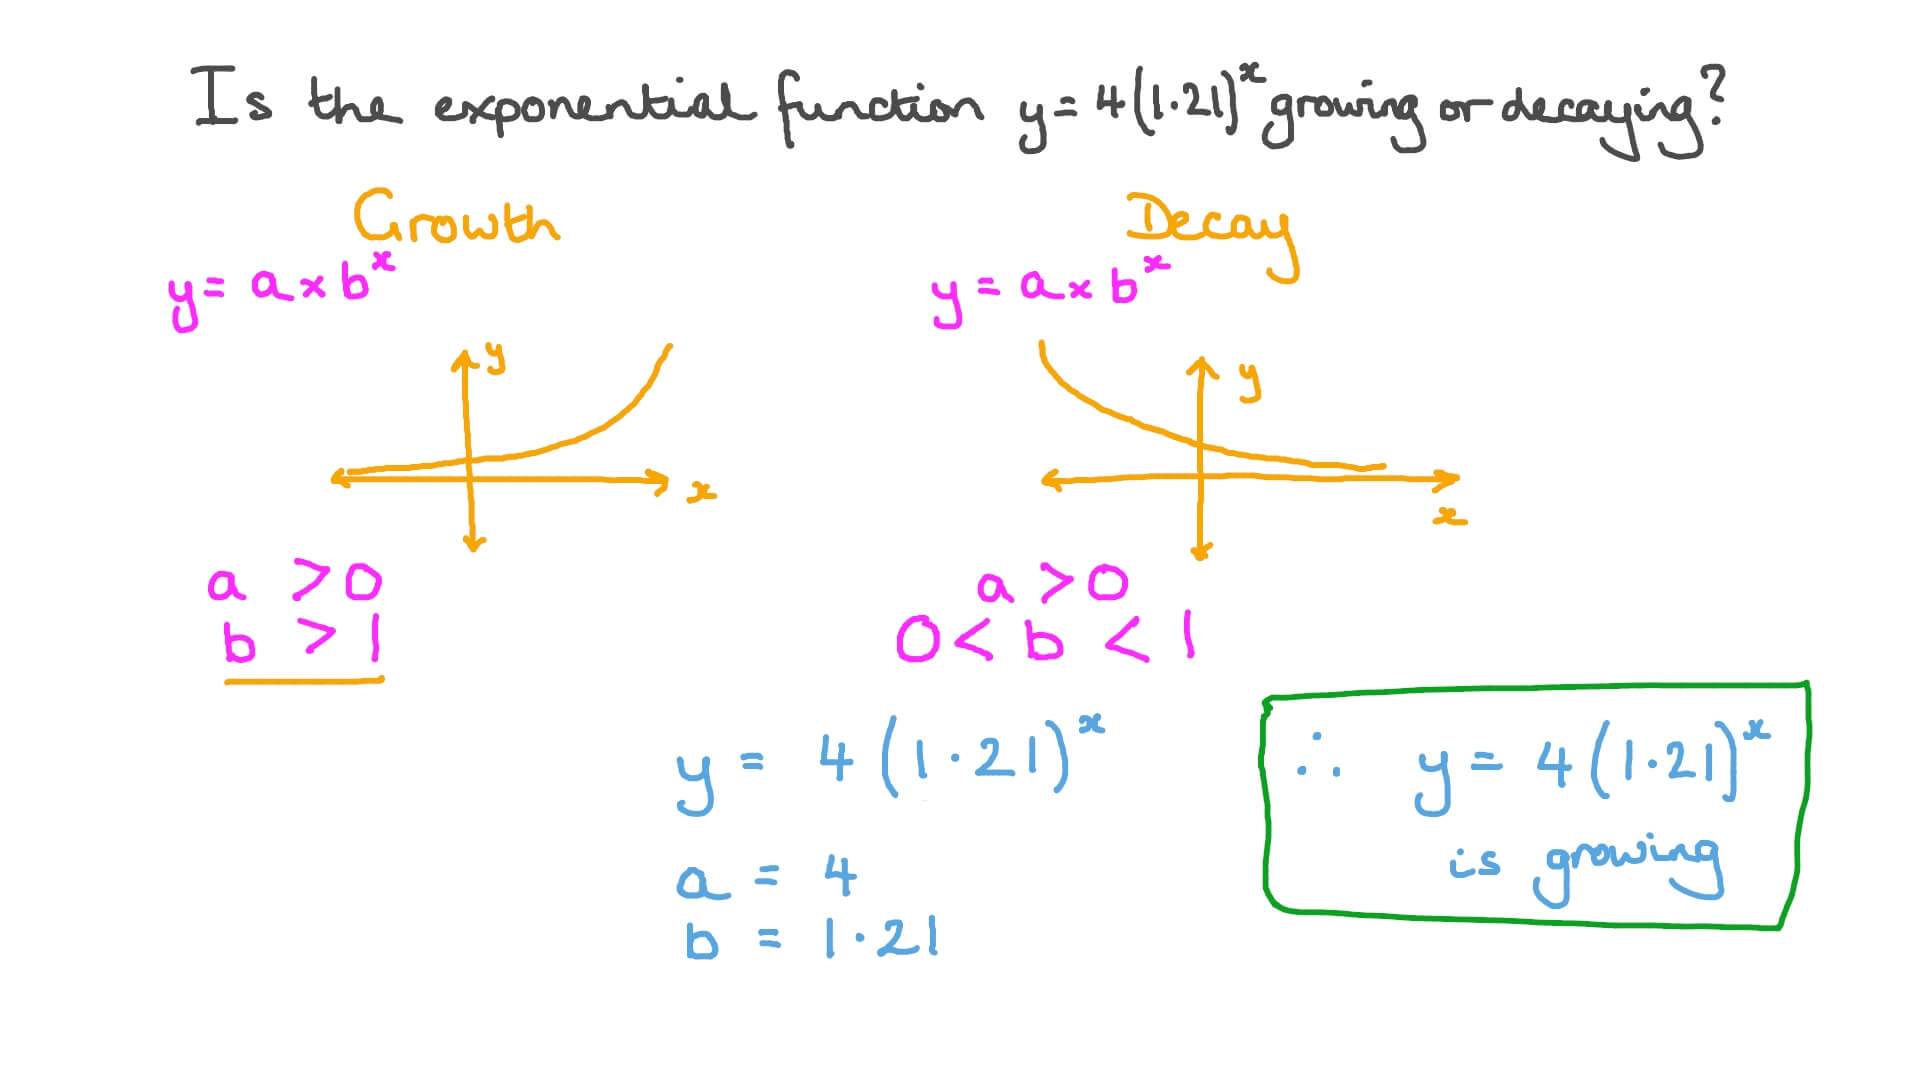 Is the exponential function y = 4(1·21)ˣ growing or decaying?
Growth
y = a × bˣ
y
x
a > 0
b > 1
Decay
y = a × bˣ
y
x
a > 0
0 < b < 1
y = 4(1·21)ˣ
a = 4
b = 1·21
∴ y = 4(1·21)ˣ
is growing